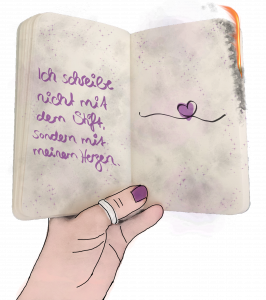 Ich schreibe
nicht mit
dem Stift,
sondern mit
meinem Herzen.